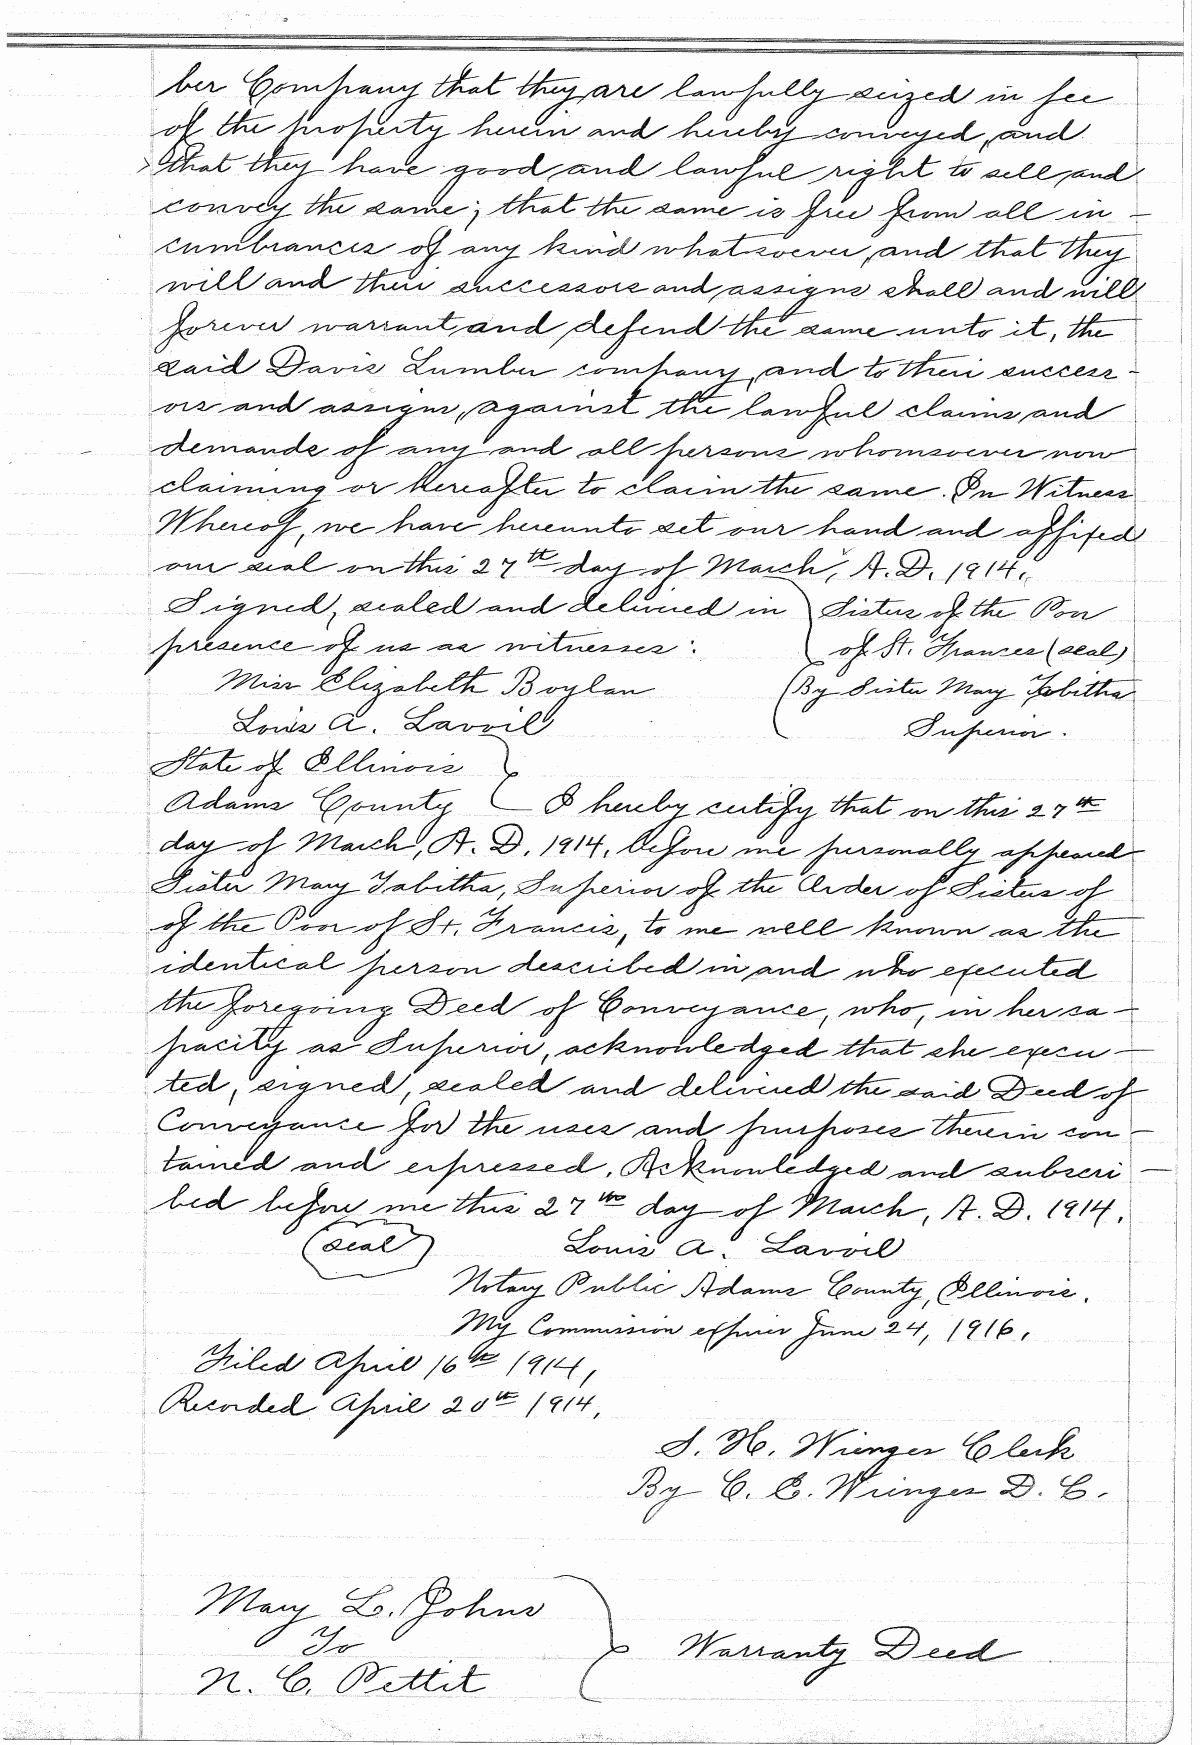 ber Company that they are lawfully seized in fee
of the property herein and hereby conveyed, and
that they have good and lawful right to sell and
convey the same; that the same is free from all in-
cumbrances of any kind whatsoever, and that they
will and their successors and assigns shall and will
forever warrant and defend the same unto it, the
said Davis Lumber company, and to their success-
ors and assigns, against the lawful claims and
demands of any and all persons whomsoever now
claiming or hereafter to claim the same. In Witness
Whereof, we have hereunto set our hand and affixed
our seal on this 27th day of March, A.D. 1914.
Signed, sealed and delivered in Sisters of the Poor
presence of us as witnesses: of St. Frances (seal)
Miss Elizabeth Boylan By Sister Mary Tabitha
Louis A. Lavoil Superior.
State of Illinois
Adams County I hereby certify that on this 27th
day of March, A.D. 1914, before me personally appeared
Sister Mary Tabitha, Superior of the Order of Sisters of
of the Poor of St. Francis, to me well known as the
identical person described in and who executed
the foregoing Deed of Conveyance, who, in her ca-
pacity as Superior, acknowledged that she execu-
ted, signed, sealed and delivered the said Deed of
Conveyance for the uses and purposes therein con-
tained and expressed. Acknowledged and subscri-
bed before me this 27th day of March, A.D. 1914.
(seal) Louis A. Lavoil
Notary Public Adams County, Illinois.
My Commission expires June 24, 1916.
Filed April 16th 1914,
Recorded April 20th 1914,
S. H. Wienges Clerk
By C. E. Wienges D. C.
Mary L. Johns
To
N. C. Pettit
Warranty Deed